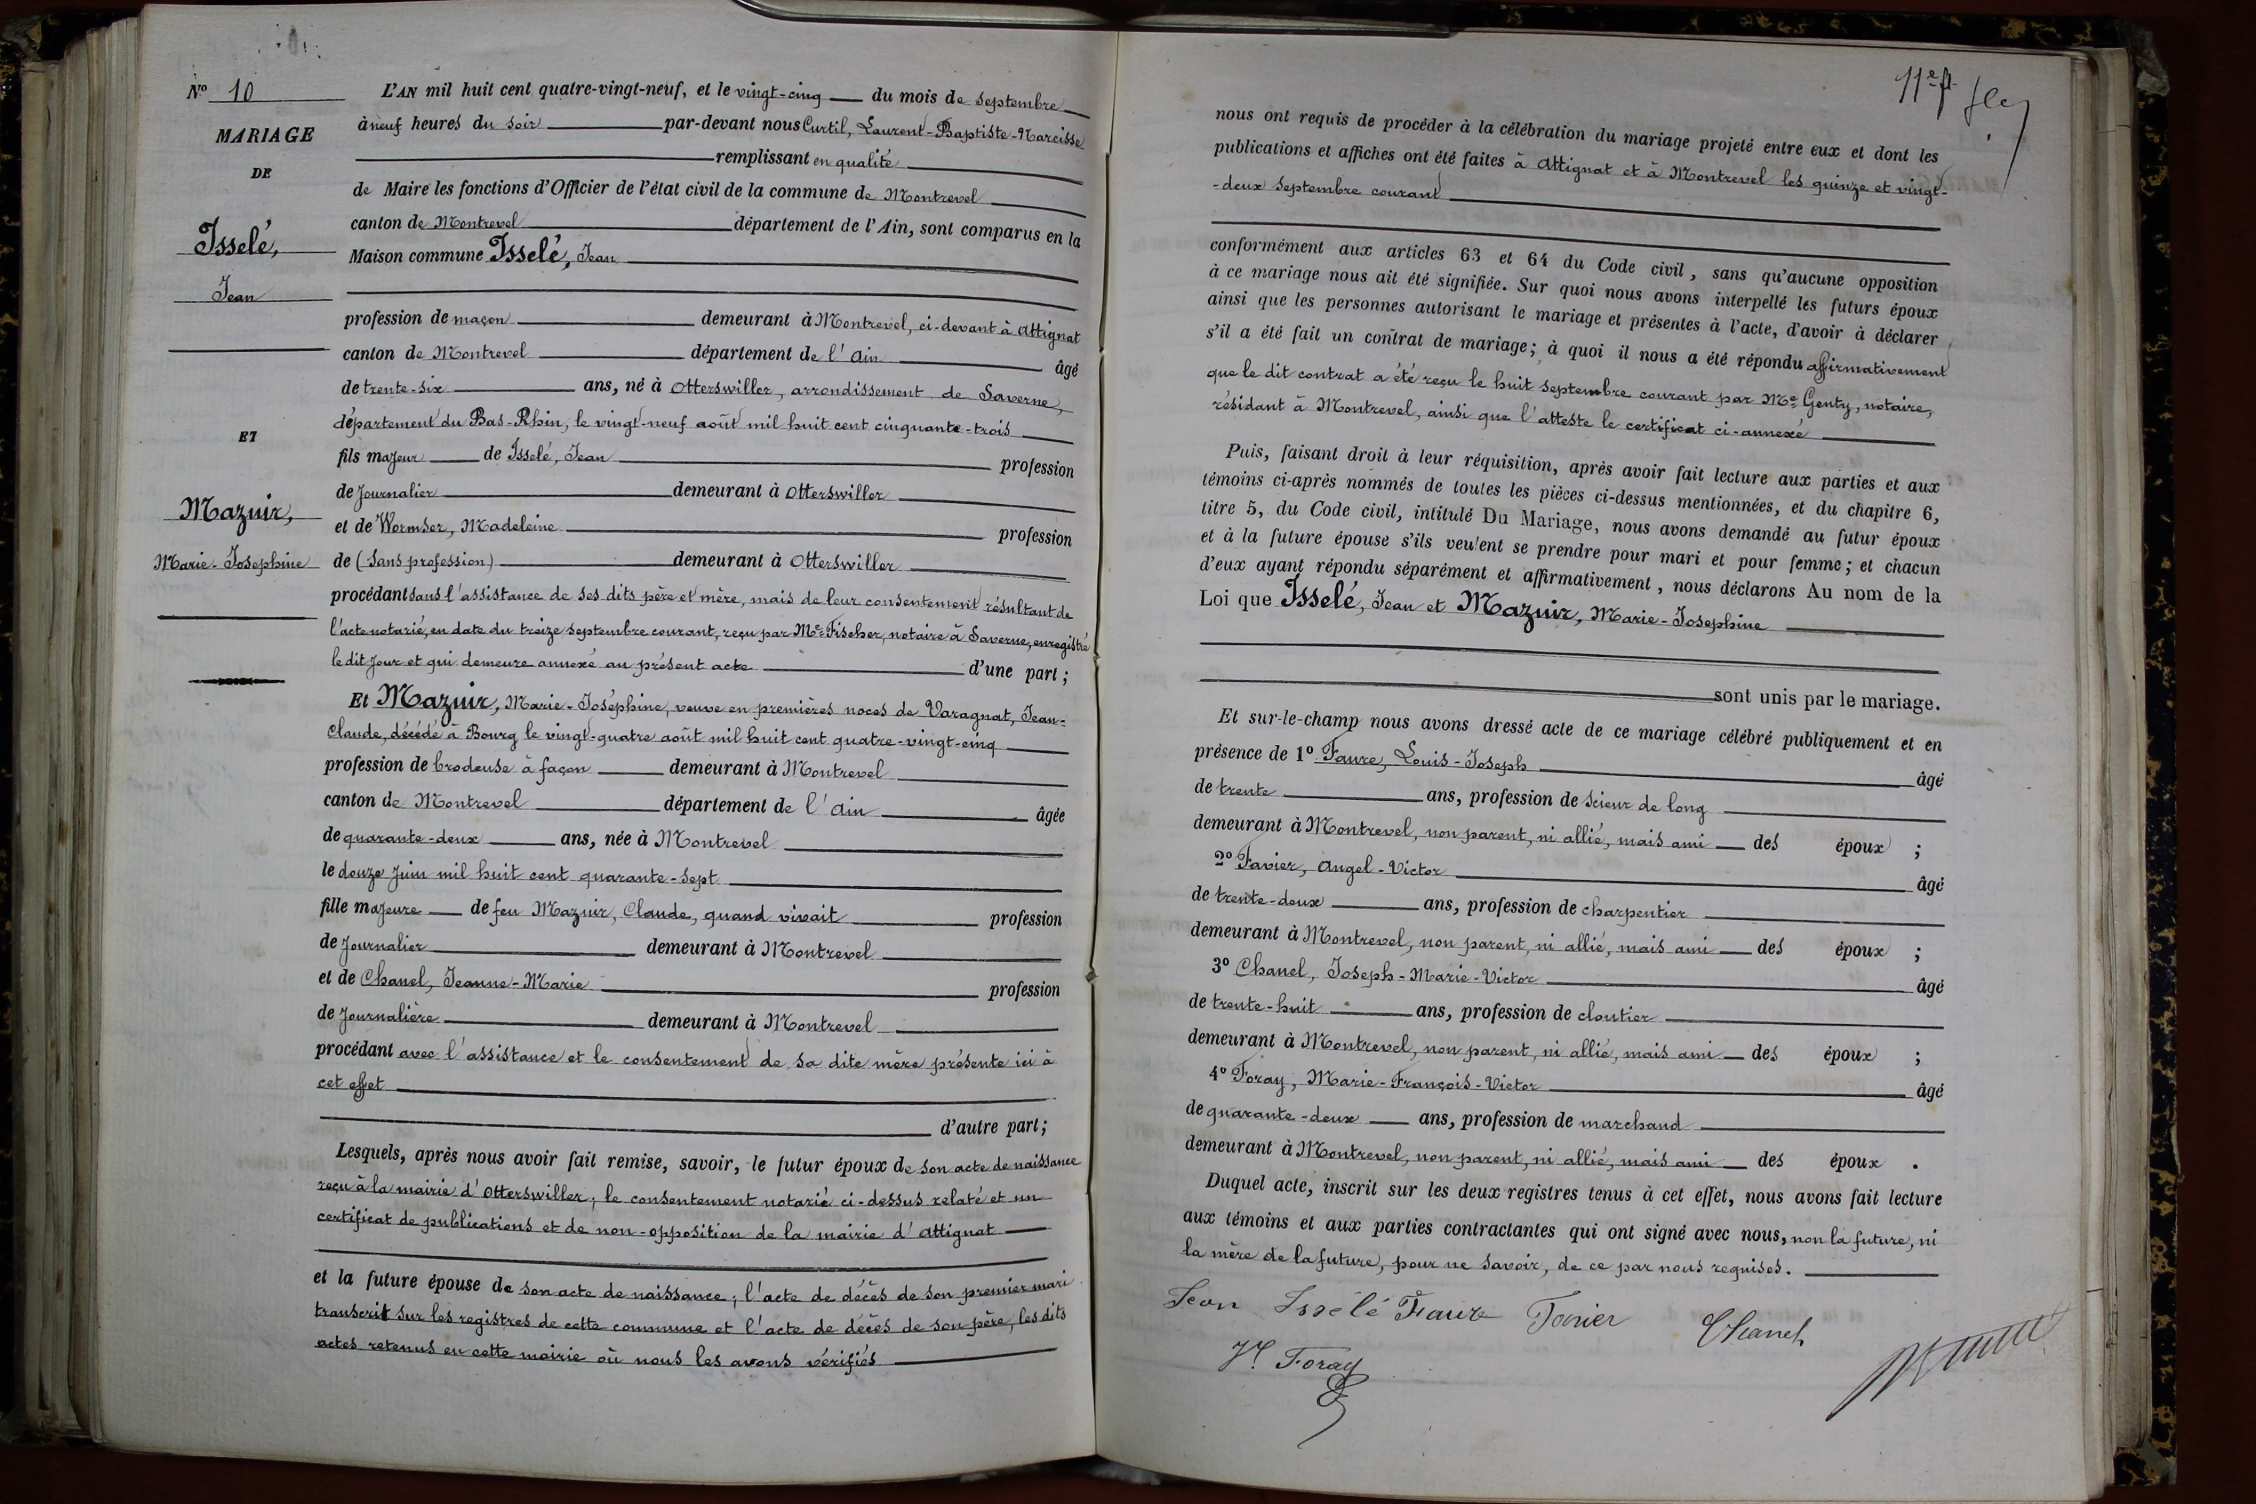 N° 10
MARIAGE
DE
Isselé,
Jean
ET
Mazuir,
Marie-Joséphine
L'AN mil huit cent quatre-vingt-neuf, et le vingt-cinq du mois de septembre
à neuf heures du soir par-devant nous Curtil, Laurent-Baptiste-Narcisse
remplissant en qualité
de Maire les fonctions d'Officier de l'état civil de la commune de Montrevel
canton de Montrevel département de l'Ain, sont comparus en la
Maison commune Isselé, Jean
profession de maçon demeurant à Montrevel, ci-devant à Attignat
canton de Montrevel département de l'Ain âgé
de trente-six ans, né à Otterswiller, arrondissement de Saverne,
département du Bas-Rhin, le vingt-neuf août mil huit cent cinquante-trois
fils majeur de Isselé, Jean profession
de journalier demeurant à Otterswiller
et de Wormser, Madeleine profession
de (sans profession) demeurant à Otterswiller
procédant sans l'assistance de ses dits père et mère, mais de leur consentement résultant de
l'acte notarié, en date du treize septembre courant, reçu par Me Fischer, notaire à Saverne, enregistré
le dit jour et qui demeure annexé au présent acte d'une part;
Et Mazuir, Marie-Joséphine, veuve en premières noces de Varagnat, Jean-
Claude, décédé à Bourg le vingt-quatre août mil huit cent quatre-vingt-cinq
profession de brodeuse à façon demeurant à Montrevel
canton de Montrevel département de l'Ain âgée
de quarante-deux ans, née à Montrevel
le douze juin mil huit cent quarante-sept
fille majeure de feu Mazuir, Claude, quand vivait profession
de journalier demeurant à Montrevel
et de Chanel, Jeanne-Marie profession
de journalière demeurant à Montrevel
procédant avec l'assistance et le consentement de sa dite mère présente ici à
cet effet
d'autre part;
Lesquels, après nous avoir fait remise, savoir, le futur époux de son acte de naissance
reçu à la mairie d'Otterswiller; le consentement notarié ci-dessus relaté et un
certificat de publications et de non-opposition de la mairie d'Attignat
et la future épouse de son acte de naissance; l'acte de décès de son premier mari
transcrit sur les registres de cette commune et l'acte de décès de son père, les dits
actes retenus en cette mairie où nous les avons vérifiés
11e ft
nous ont requis de procéder à la célébration du mariage projeté entre eux et dont les
publications et affiches ont été faites à Attignat et à Montrevel les quinze et vingt-
-deux septembre courant
conformément aux articles 63 et 64 du Code civil, sans qu'aucune opposition
à ce mariage nous ait été signifiée. Sur quoi nous avons interpellé les futurs époux
ainsi que les personnes autorisant le mariage et présentes à l'acte, d'avoir à déclarer
s'il a été fait un contrat de mariage; à quoi il nous a été répondu affirmativement
que le dit contrat a été reçu le huit septembre courant par Me Genty, notaire,
résidant à Montrevel, ainsi que l'atteste le certificat ci-annexé
Puis, faisant droit à leur réquisition, après avoir fait lecture aux parties et aux
témoins ci-après nommés de toutes les pièces ci-dessus mentionnées, et du chapitre 6,
titre 5, du Code civil, intitulé Du Mariage, nous avons demandé au futur époux
et à la future épouse s'ils veulent se prendre pour mari et pour femme; et chacun
d'eux ayant répondu séparément et affirmativement, nous déclarons Au nom de la
Loi que Isselé, Jean et Mazuir, Marie-Joséphine
sont unis par le mariage.
Et sur-le-champ nous avons dressé acte de ce mariage célébré publiquement et en
présence de 1° Faure, Louis-Joseph âgé
de trente ans, profession de scieur de long
demeurant à Montrevel, non parent, ni allié, mais ami des époux ;
2° Favier, Angel-Victor âgé
de trente-deux ans, profession de charpentier
demeurant à Montrevel, non parent, ni allié, mais ami des époux ;
3° Chanel, Joseph-Marie-Victor âgé
de trente-huit ans, profession de cloutier
demeurant à Montrevel, non parent, ni allié, mais ami des époux ;
4° Foray, Marie-François-Victor âgé
de quarante-deux ans, profession de marchand
demeurant à Montrevel, non parent, ni allié, mais ami des époux .
Duquel acte, inscrit sur les deux registres tenus à cet effet, nous avons fait lecture
aux témoins et aux parties contractantes qui ont signé avec nous, non la future, ni
la mère de la future, pour ne savoir, de ce par nous requises.
Jean Isselé Faure Favier Chanel
Vr Foray